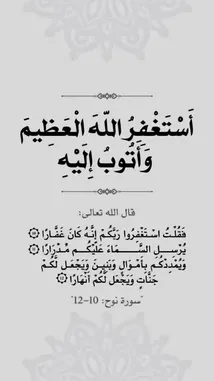 أَسْتَغْفِرُ اللّٰهَ الْعَظِيمَ
وَأَتُوبُ إِلَيْهِ
قال الله تعالى:
فَقُلْتُ اسْتَغْفِرُوا رَبَّكُمْ إِنَّهُ كَانَ غَفَّارًا ۝
يُرْسِلِ السَّمَاءَ عَلَيْكُم مِّدْرَارًا ۝
وَيُمْدِدْكُم بِأَمْوَالٍ وَبَنِينَ وَيَجْعَل لَّكُمْ
جَنَّاتٍ وَيَجْعَل لَّكُمْ أَنْهَارًا ۝
"سورة نوح: 10-12"